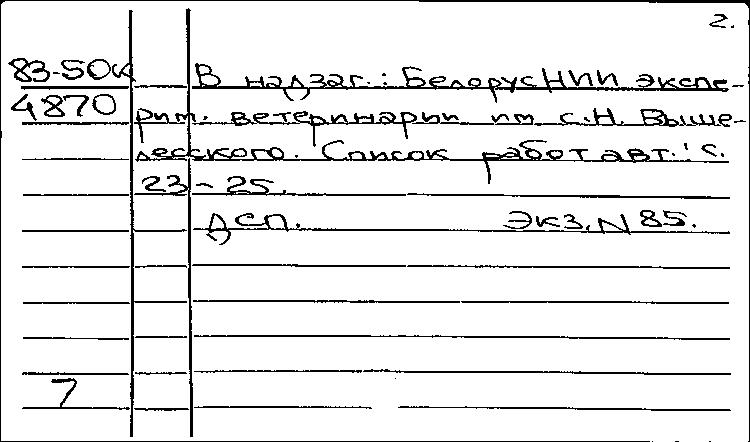 2.
83-50к В надзаг.: БелорусНИИ экспе-
4870 рим. ветеринарии им. С.Н. Выше-
лесского. Список работ авт.: с.
23-25.
ДСП. Экз. N 85.
7